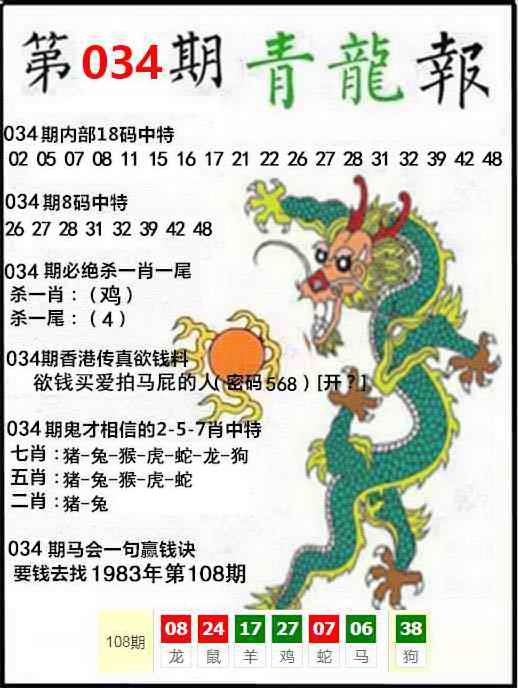 第034期青龍報
034期内部18码中特
02 05 07 08 11 15 16 17 21 22 26 27 28 31 32 39 42 48
034期8码中特
26 27 28 31 32 39 42 48
034 期必绝杀一肖一尾
杀一肖：（鸡）
杀一尾：（4）
034期香港传真欲钱料
欲钱买爱拍马屁的人（密码568）[开？]
034期鬼才相信的2-5-7肖中特
七肖：猪-兔-猴-虎-蛇-龙-狗
五肖：猪-兔-猴-虎-蛇
二肖：猪-兔
034 期马会一句赢钱诀
要钱去找1983年第108期
108期 08 24 17 27 07 06 38
龙 鼠 羊 鸡 蛇 马 狗